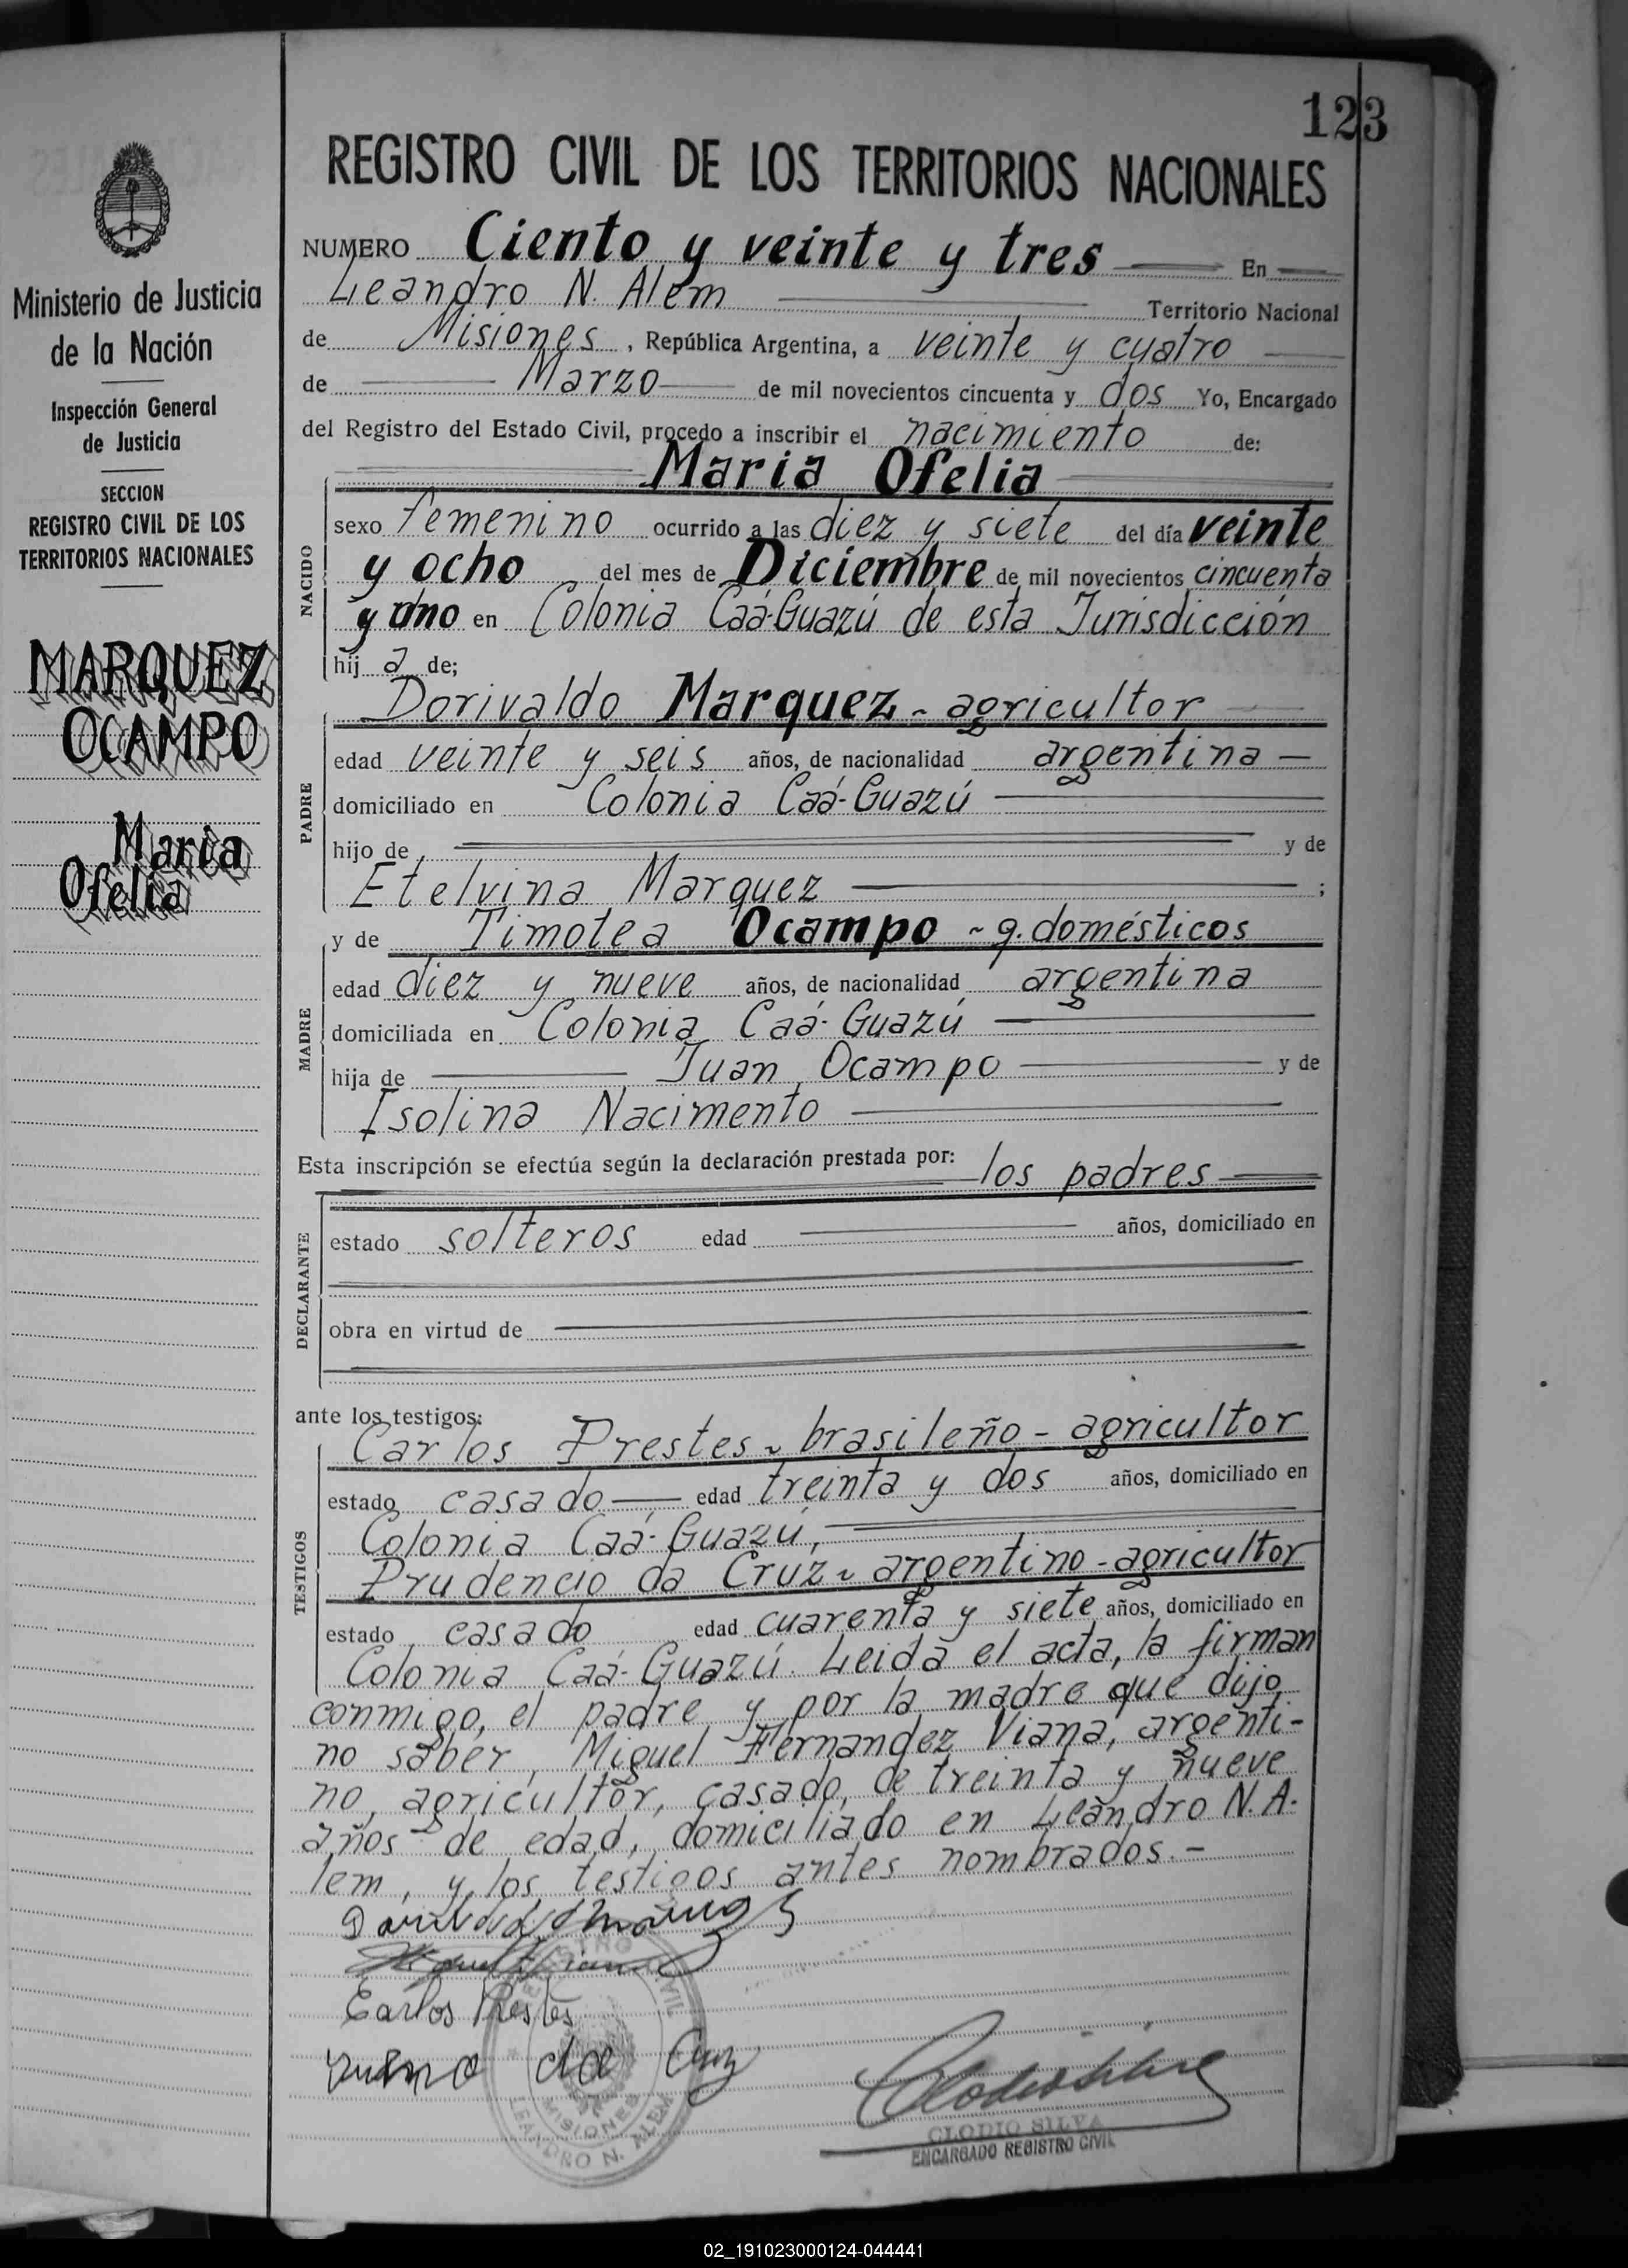 123
REGISTRO CIVIL DE LOS TERRITORIOS NACIONALES
NUMERO Ciento y veinte y tres En
Leandro N. Alem Territorio Nacional
de Misiones, República Argentina, a veinte y cuatro
de Marzo de mil novecientos cincuenta y dos Yo, Encargado
del Registro del Estado Civil, procedo a inscribir el nacimiento de:
Maria Ofelia
sexo femenino ocurrido a las diez y siete del día veinte
y ocho del mes de Diciembre de mil novecientos cincuenta
y uno en Colonia Caá-Guazú de esta Jurisdicción
hij a de;
NACIDO
Dorivaldo Marquez - agricultor
edad veinte y seis años, de nacionalidad argentina
domiciliado en Colonia Caá-Guazú
hijo de y de
Etelvina Marquez ;
PADRE
y de Timotea Ocampo - q. domésticos
edad diez y nueve años, de nacionalidad argentina
domiciliada en Colonia Caá-Guazú
hija de Juan Ocampo y de
Isolina Nacimento
MADRE
Esta inscripción se efectúa según la declaración prestada por: los padres
estado solteros edad años, domiciliado en
obra en virtud de
DECLARANTE
ante los testigos:
Carlos Prestes - brasileño - agricultor
estado casado edad treinta y dos años, domiciliado en
Colonia Caá-Guazú,
Prudencio da Cruz - argentino - agricultor
estado casado edad cuarenta y siete años, domiciliado en
TESTIGOS
Colonia Caá-Guazú. Leida el acta, la firman
conmigo, el padre y por la madre que dijo
no saber, Miguel Fernandez Viana, argenti-
no, agricultor, casado, de treinta y nueve
años de edad, domiciliado en Leandro N. A-
lem, y los testigos antes nombrados.-
Carlos Prestes
da Cruz
REGISTRO CIVIL
MISIONES
LEANDRO N. ALEM
CLODIO SILVA
ENCARGADO REGISTRO CIVIL
Ministerio de Justicia
de la Nación
Inspección General
de Justicia
SECCION
REGISTRO CIVIL DE LOS
TERRITORIOS NACIONALES
MARQUEZ
OCAMPO
Maria
Ofelia
02_191023000124-044441